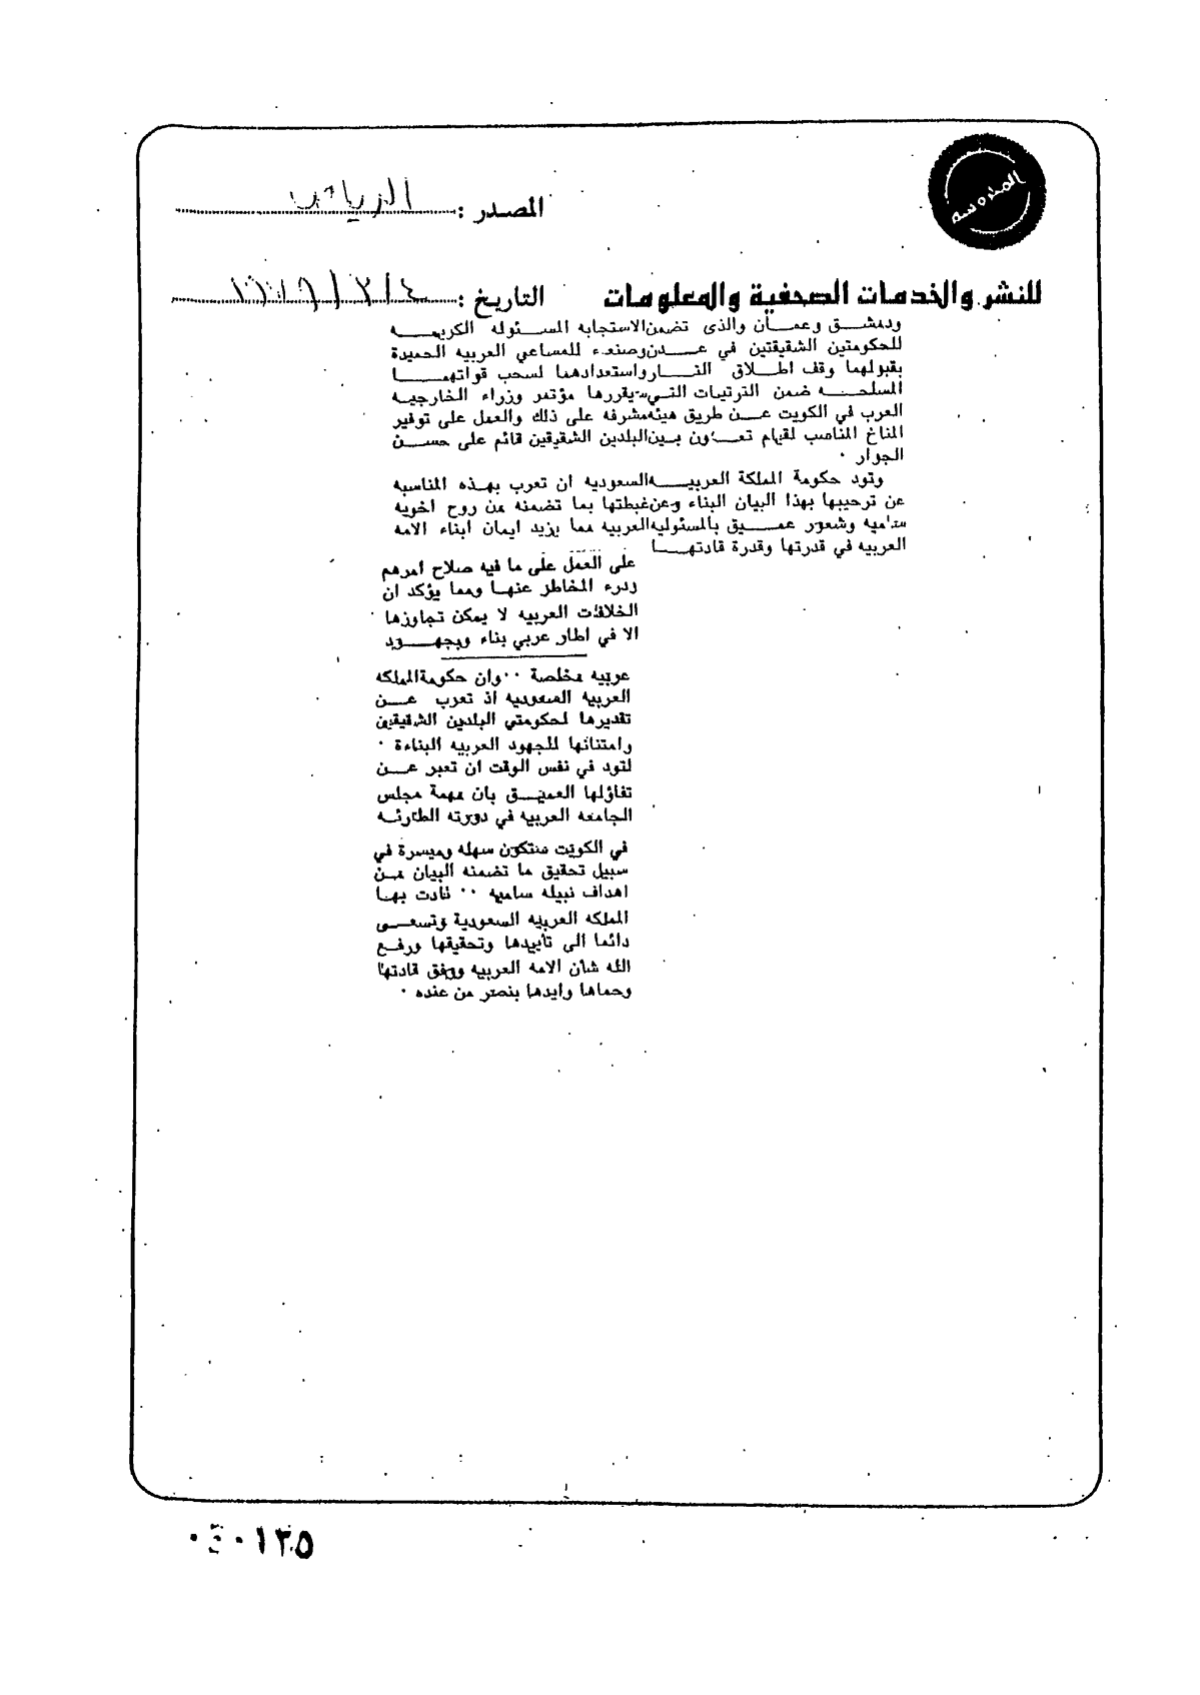 المصدر : الرياض
المدروسه
للنشر والخدمات الصحفية والمعلومات
التاريخ : ١٩٧٩/٣/٤
ودمشــق وعمــان والذى تضمن الاستجابه المســئوله الكريمــه
للحكومتين الشقيقتين في عــدن وصنعاء للمساعي العربيه الحميدة
بقبولهما وقف اطــلاق النــار واستعدادهما لسحب قواتهمــا
المسلحــه ضمن الترتيبات التي سيقررها مؤتمر وزراء الخارجيه
العرب في الكويت عــن طريق هيئه مشرفه على ذلك والعمل على توفير
المناخ المناسب لقيام تعــاون بــين البلدين الشقيقين قائم على حســن
الجوار ٠
وتود حكومة المملكة العربيــه السعوديه ان تعرب بهــذه المناسبه
عن ترحيبها بهذا البيان البناء وعن غبطتها بما تضمنه من روح اخويه
ساميه وشعور عمــيق بالمسئوليه العربيه مما يزيد ايمان ابناء الامه
العربيه في قدرتها وقدرة قادتهــا
على العمل على ما فيه صلاح امرهم
ودرء المخاطر عنهــا ومما يؤكد ان
الخلافات العربيه لا يمكن تجاوزها
الا في اطار عربي بناء وبجهــود
عربيه مخلصة ٠٠ وان حكومة المملكه
العربيه السعوديه اذ تعرب عــن
تقديرها لحكومتي البلدين الشقيقين
وامتنانها للجهود العربيه البناءة ٠
لتود في نفس الوقت ان تعبر عــن
تفاؤلها العميــق بان مهمة مجلس
الجامعه العربيه في دورته الطارئــه
في الكويت ستكون سهله وميسرة في
سبيل تحقيق ما تضمنه البيان مــن
اهداف نبيله ساميه ٠٠ نادت بهــا
المملكه العربيه السعودية وتسعــى
دائما الى تأييدها وتحقيقها ورفــع
الله شأن الامه العربيه ووفق قادتها
وحماها وايدها بنصر من عنده ٠
٠٤٠١٣٥